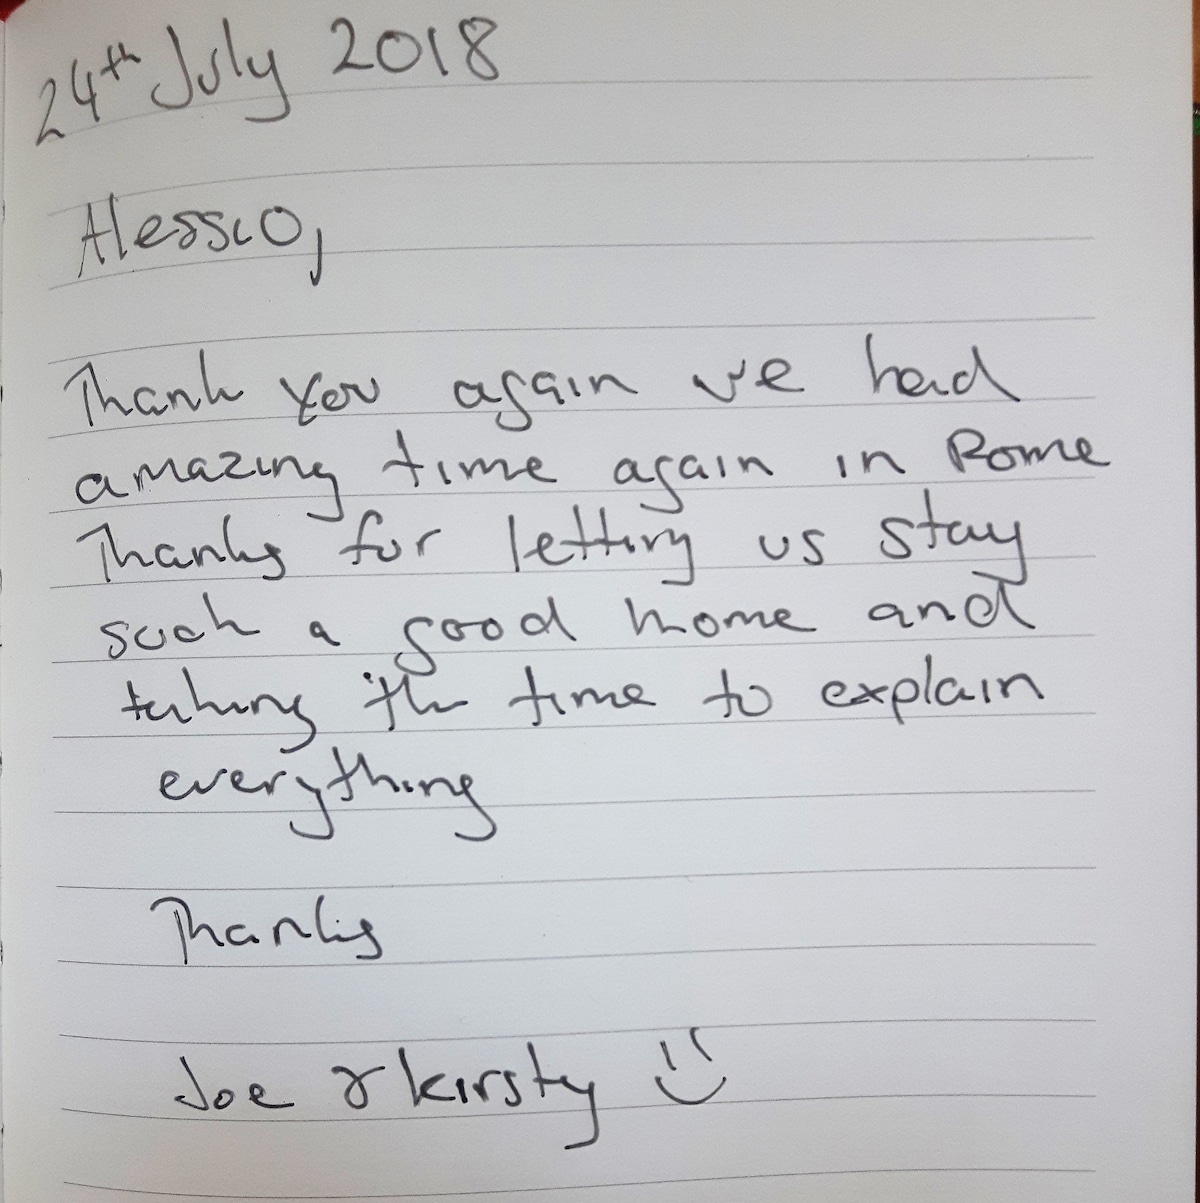 24th July 2018
Alessio,
Thank you again we had
amazing time again in Rome
Thanks for letting us stay
such a good home and
taking the time to explain
everything
Thanks
Joe & Kirsty